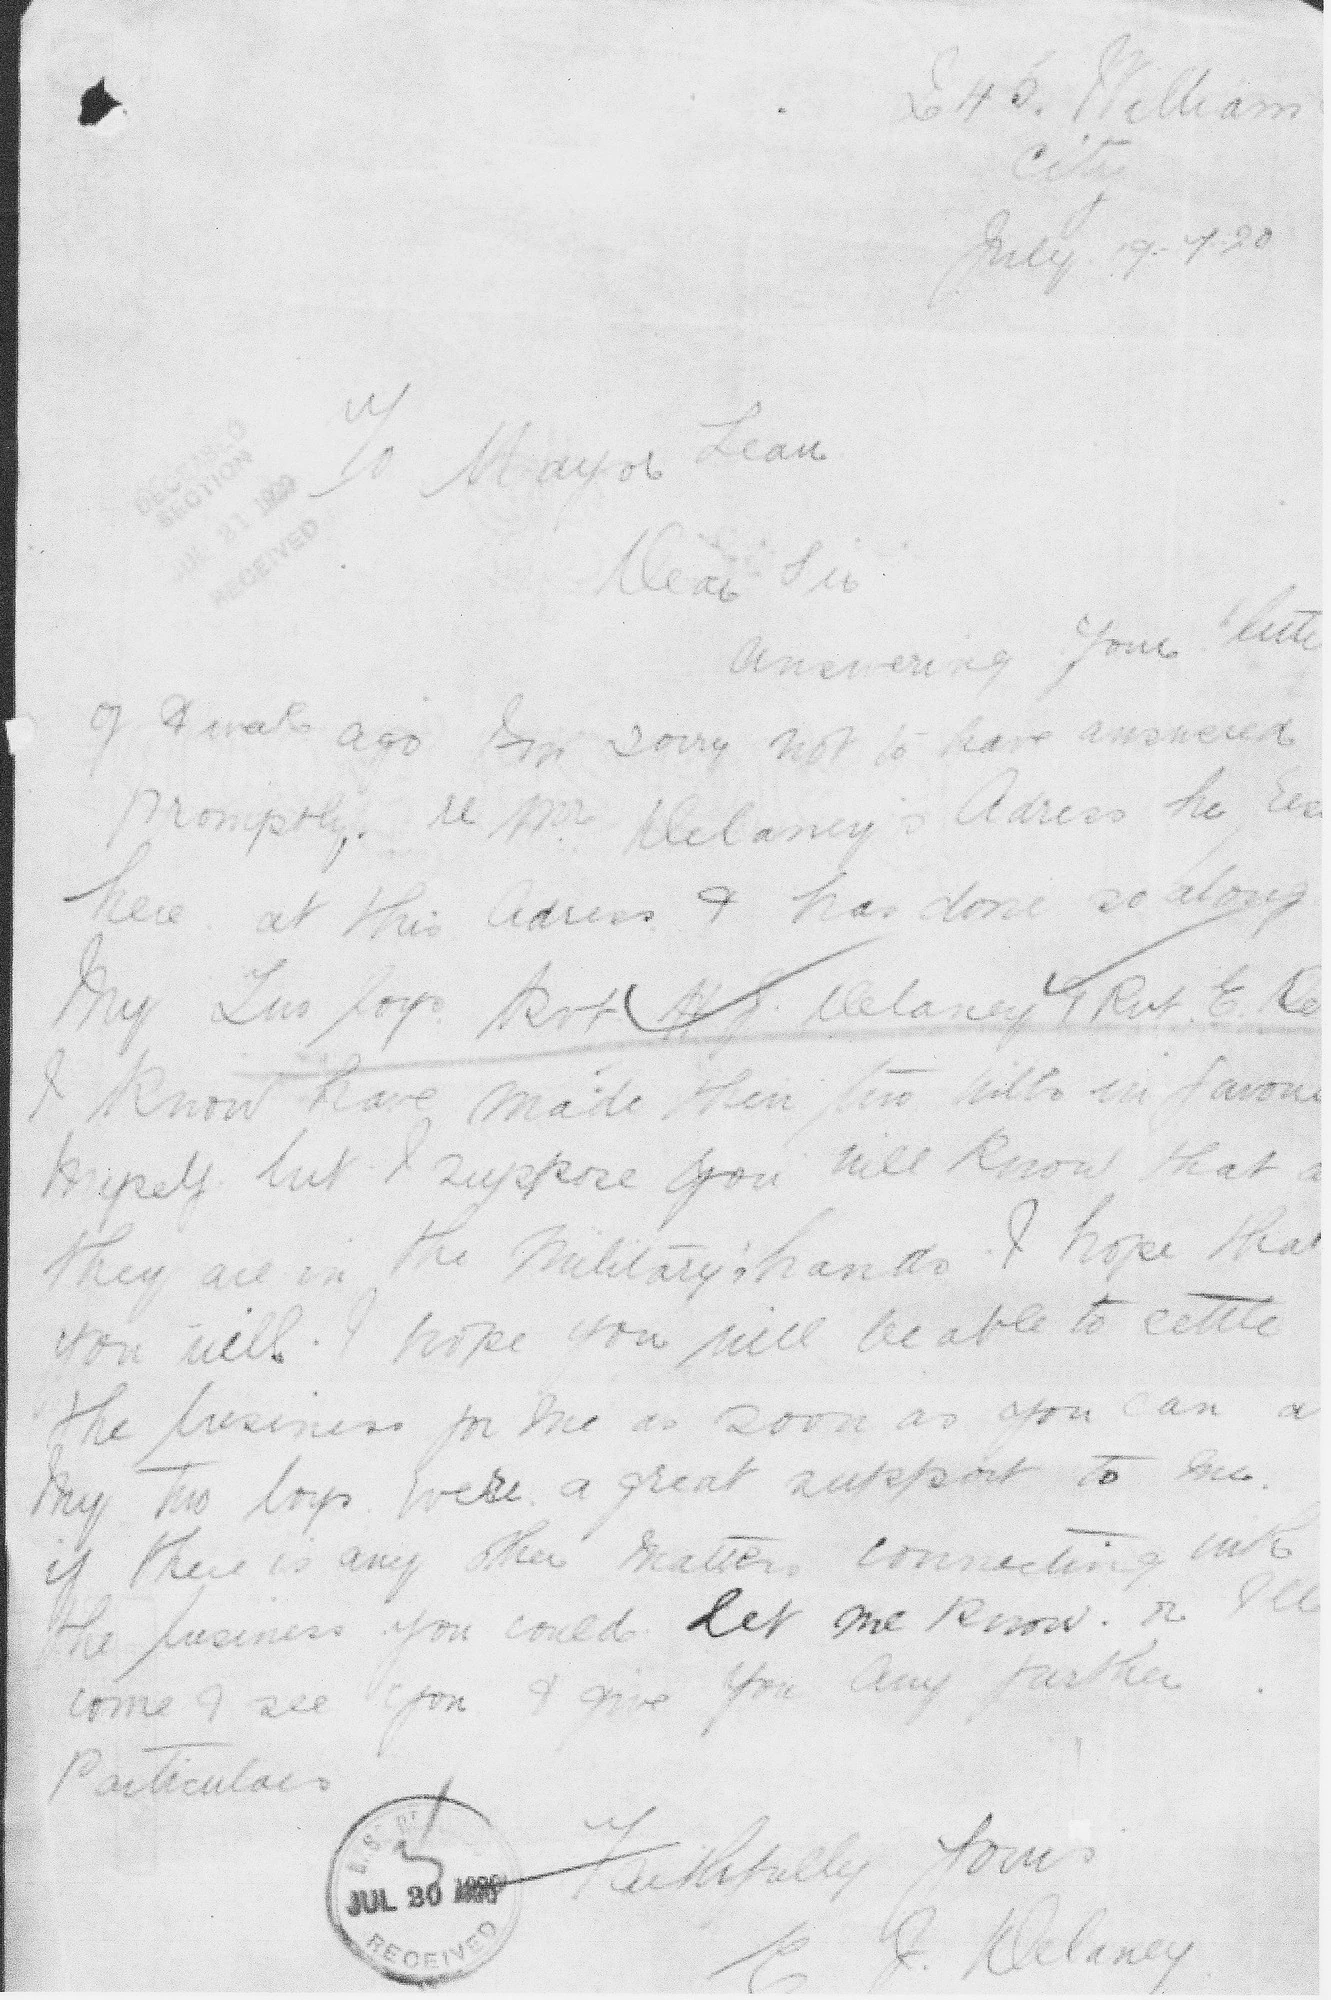 245. William
City
July 19-7-20
To Mayor Lean
Dear Sir
answering your lette
of a week ago I'm sorry not to have answered
promptly, re Mr Delaney's Adress he
here at this Adress & has done so along
My Two boys Pvt H J. Delaney & Pvt. E. De
I know have made their two wills in favou
Myself but I suppose you will know that a
they are in the Military's hands I hope that
you will. I hope you will be able to settle
the business for me as soon as you can a
My two boys were a great support to me.
if there is any other matters connecting with
the business you could let me know. or I'll
come & see you & give you any further
Particulars
Faithfully Yours
E J. Delaney
DECEASED
SECTION
JUL 21 1920
RECEIVED
JUL 20 1920
RECEIVED